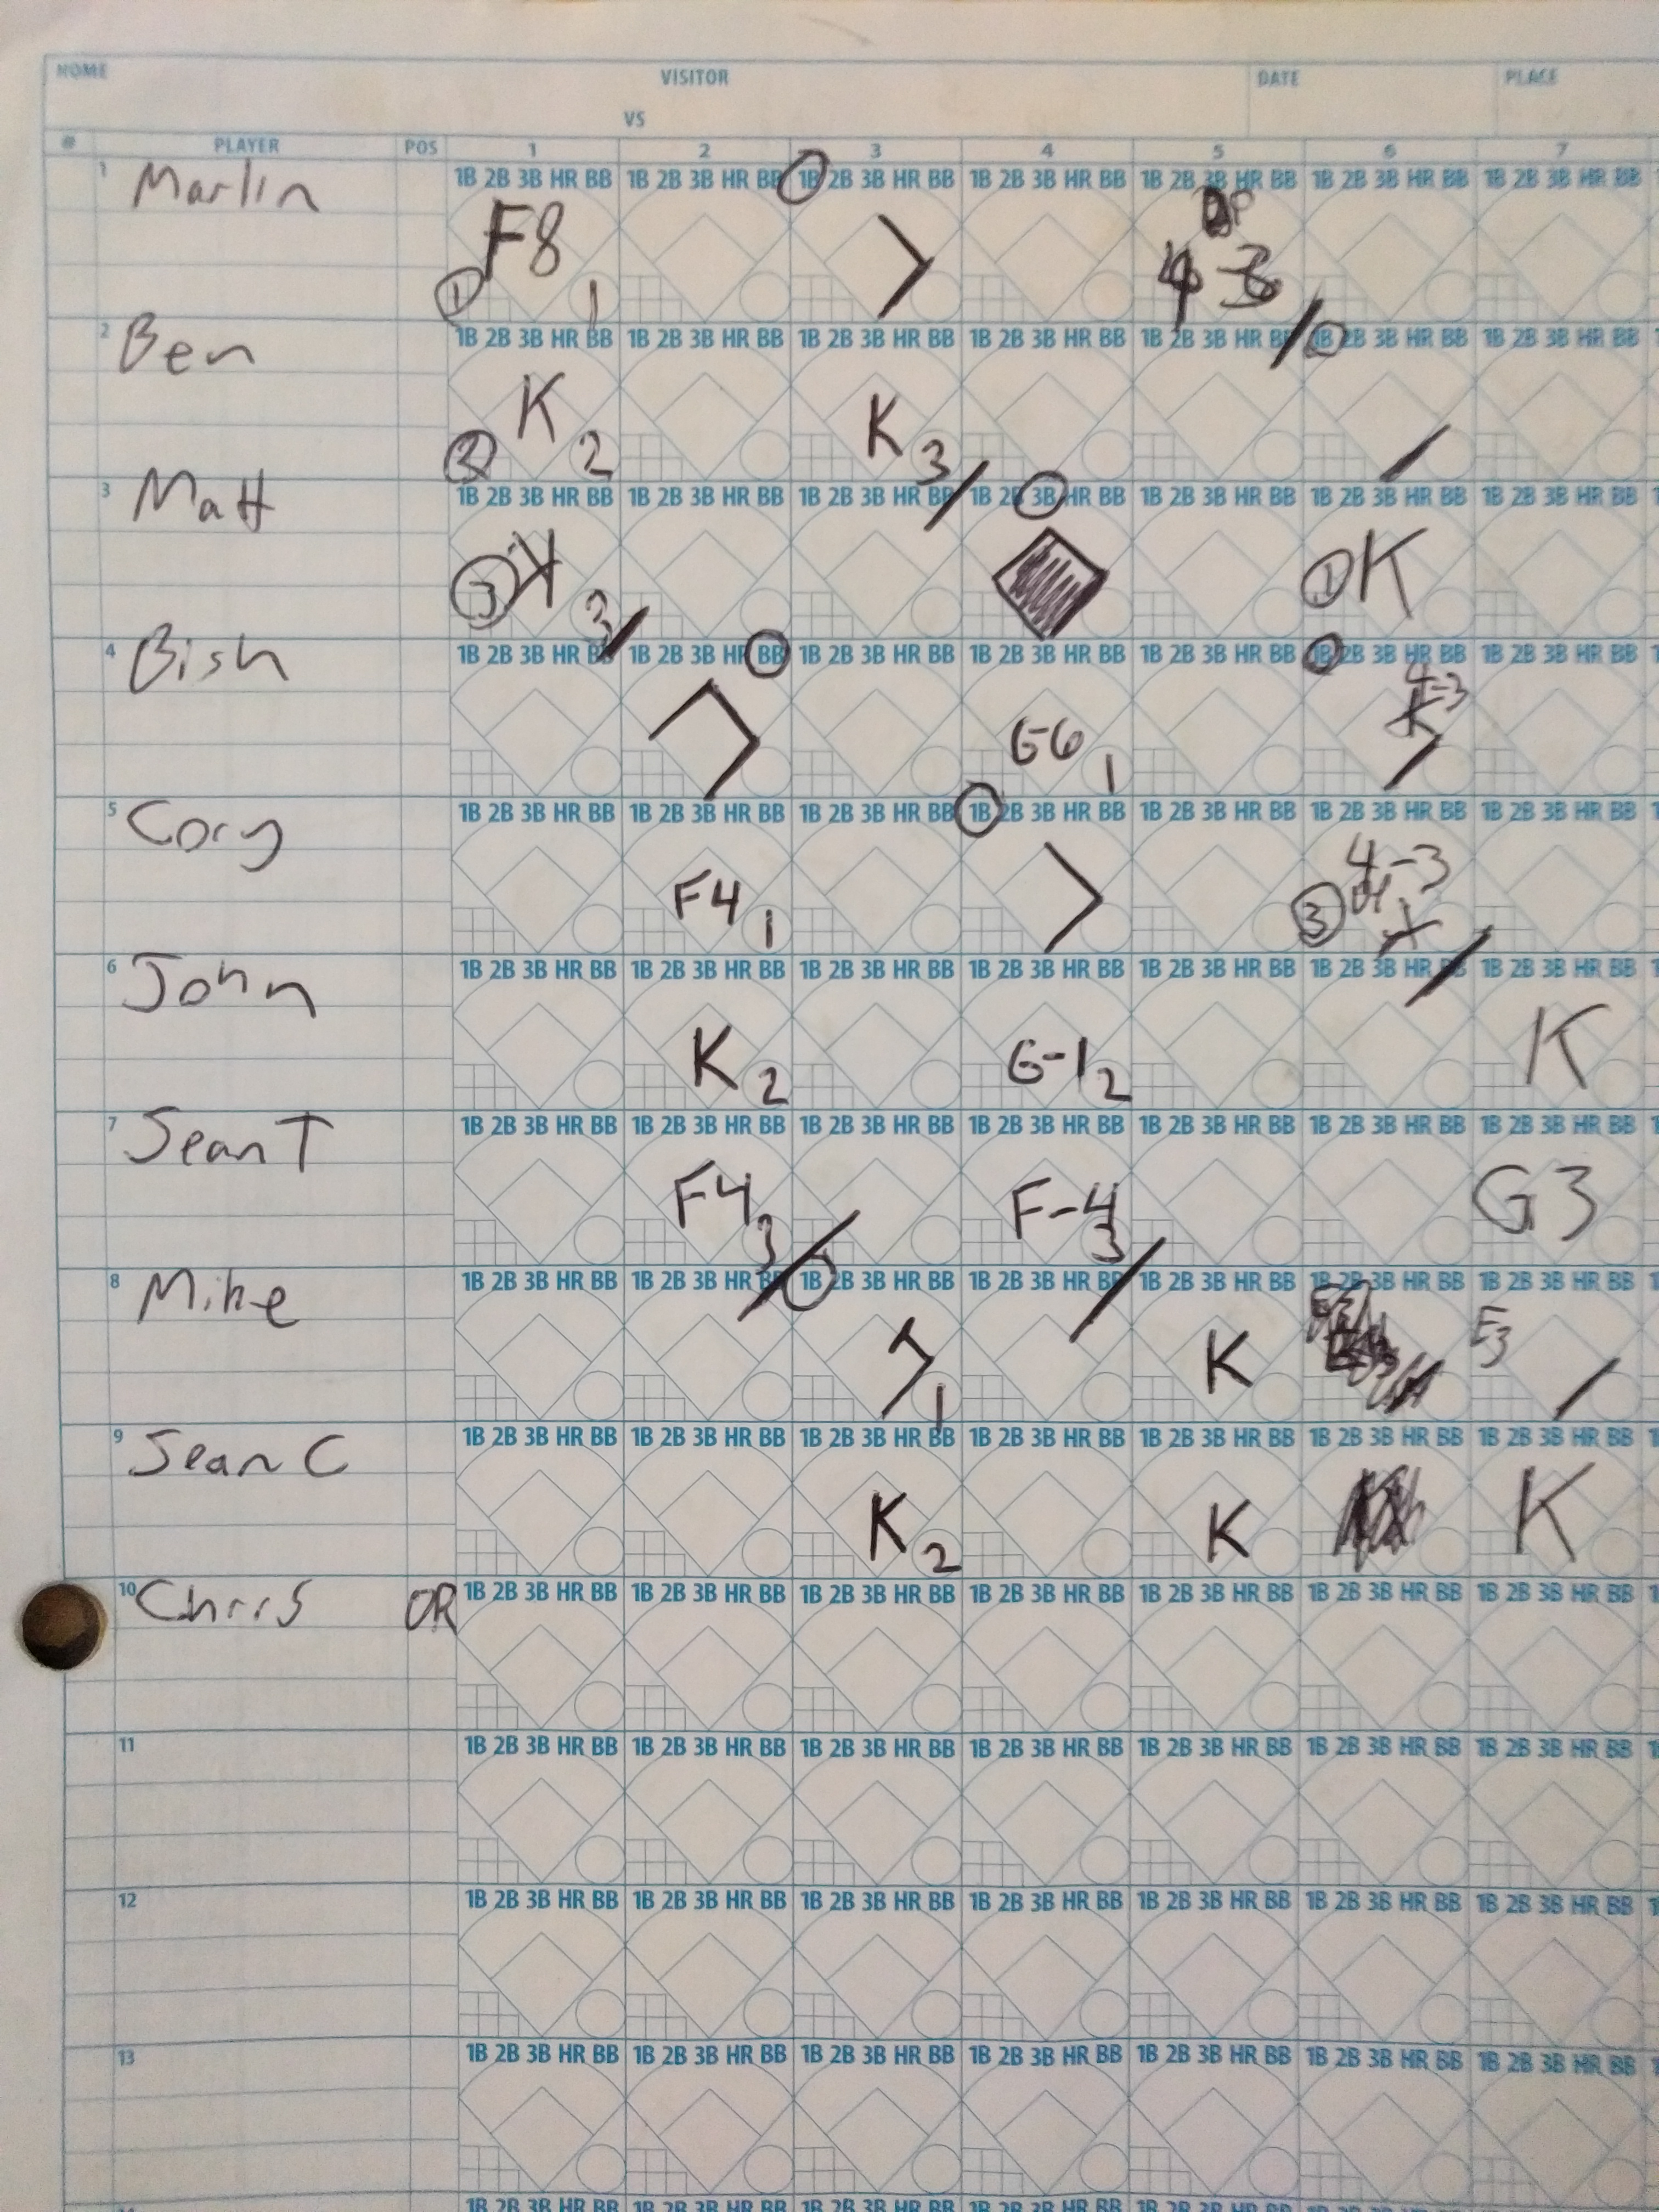 HOME VISITOR DATE PLACE
VS
# PLAYER POS 1 2 3 4 5 6 7
1 Marlin 1B 2B 3B HR BB 1B 2B 3B HR BB 1B 2B 3B HR BB 1B 2B 3B HR BB 1B 2B 3B HR BB 1B 2B 3B HR BB 1B 2B 3B HR BB
F8 1 1 4 3
2 Ben 1B 2B 3B HR BB 1B 2B 3B HR BB 1B 2B 3B HR BB 1B 2B 3B HR BB 1B 2B 3B HR BB 1B 2B 3B HR BB 1B 2B 3B HR BB
K 2 2 K 3
3 Matt 1B 2B 3B HR BB 1B 2B 3B HR BB 1B 2B 3B HR BB 1B 2B 3B HR BB 1B 2B 3B HR BB 1B 2B 3B HR BB 1B 2B 3B HR BB
3 K 3 1 K
4 Bish 1B 2B 3B HR BB 1B 2B 3B HR BB 1B 2B 3B HR BB 1B 2B 3B HR BB 1B 2B 3B HR BB 1B 2B 3B HR BB 1B 2B 3B HR BB
G-6 1 4-3
5 Cory 1B 2B 3B HR BB 1B 2B 3B HR BB 1B 2B 3B HR BB 1B 2B 3B HR BB 1B 2B 3B HR BB 1B 2B 3B HR BB 1B 2B 3B HR BB
F4 1 4-3 3
6 John 1B 2B 3B HR BB 1B 2B 3B HR BB 1B 2B 3B HR BB 1B 2B 3B HR BB 1B 2B 3B HR BB 1B 2B 3B HR BB 1B 2B 3B HR BB
K 2 G-1 2 K
7 Sean T 1B 2B 3B HR BB 1B 2B 3B HR BB 1B 2B 3B HR BB 1B 2B 3B HR BB 1B 2B 3B HR BB 1B 2B 3B HR BB 1B 2B 3B HR BB
F4 3 F-4 3 G3
8 Mike 1B 2B 3B HR BB 1B 2B 3B HR BB 1B 2B 3B HR BB 1B 2B 3B HR BB 1B 2B 3B HR BB 1B 2B 3B HR BB 1B 2B 3B HR BB
1 K E3
9 Sean C 1B 2B 3B HR BB 1B 2B 3B HR BB 1B 2B 3B HR BB 1B 2B 3B HR BB 1B 2B 3B HR BB 1B 2B 3B HR BB 1B 2B 3B HR BB
K 2 K K
10 Chris OR 1B 2B 3B HR BB 1B 2B 3B HR BB 1B 2B 3B HR BB 1B 2B 3B HR BB 1B 2B 3B HR BB 1B 2B 3B HR BB 1B 2B 3B HR BB
11 1B 2B 3B HR BB 1B 2B 3B HR BB 1B 2B 3B HR BB 1B 2B 3B HR BB 1B 2B 3B HR BB 1B 2B 3B HR BB 1B 2B 3B HR BB
12 1B 2B 3B HR BB 1B 2B 3B HR BB 1B 2B 3B HR BB 1B 2B 3B HR BB 1B 2B 3B HR BB 1B 2B 3B HR BB 1B 2B 3B HR BB
13 1B 2B 3B HR BB 1B 2B 3B HR BB 1B 2B 3B HR BB 1B 2B 3B HR BB 1B 2B 3B HR BB 1B 2B 3B HR BB 1B 2B 3B HR BB
1B 2B 3B HR BB 1B 2B 3B HR BB 1B 2B 3B HR BB 1B 2B 3B HR BB 1B 2B 3B HR BB 1B 2B 3B HR BB 1B 2B 3B HR BB